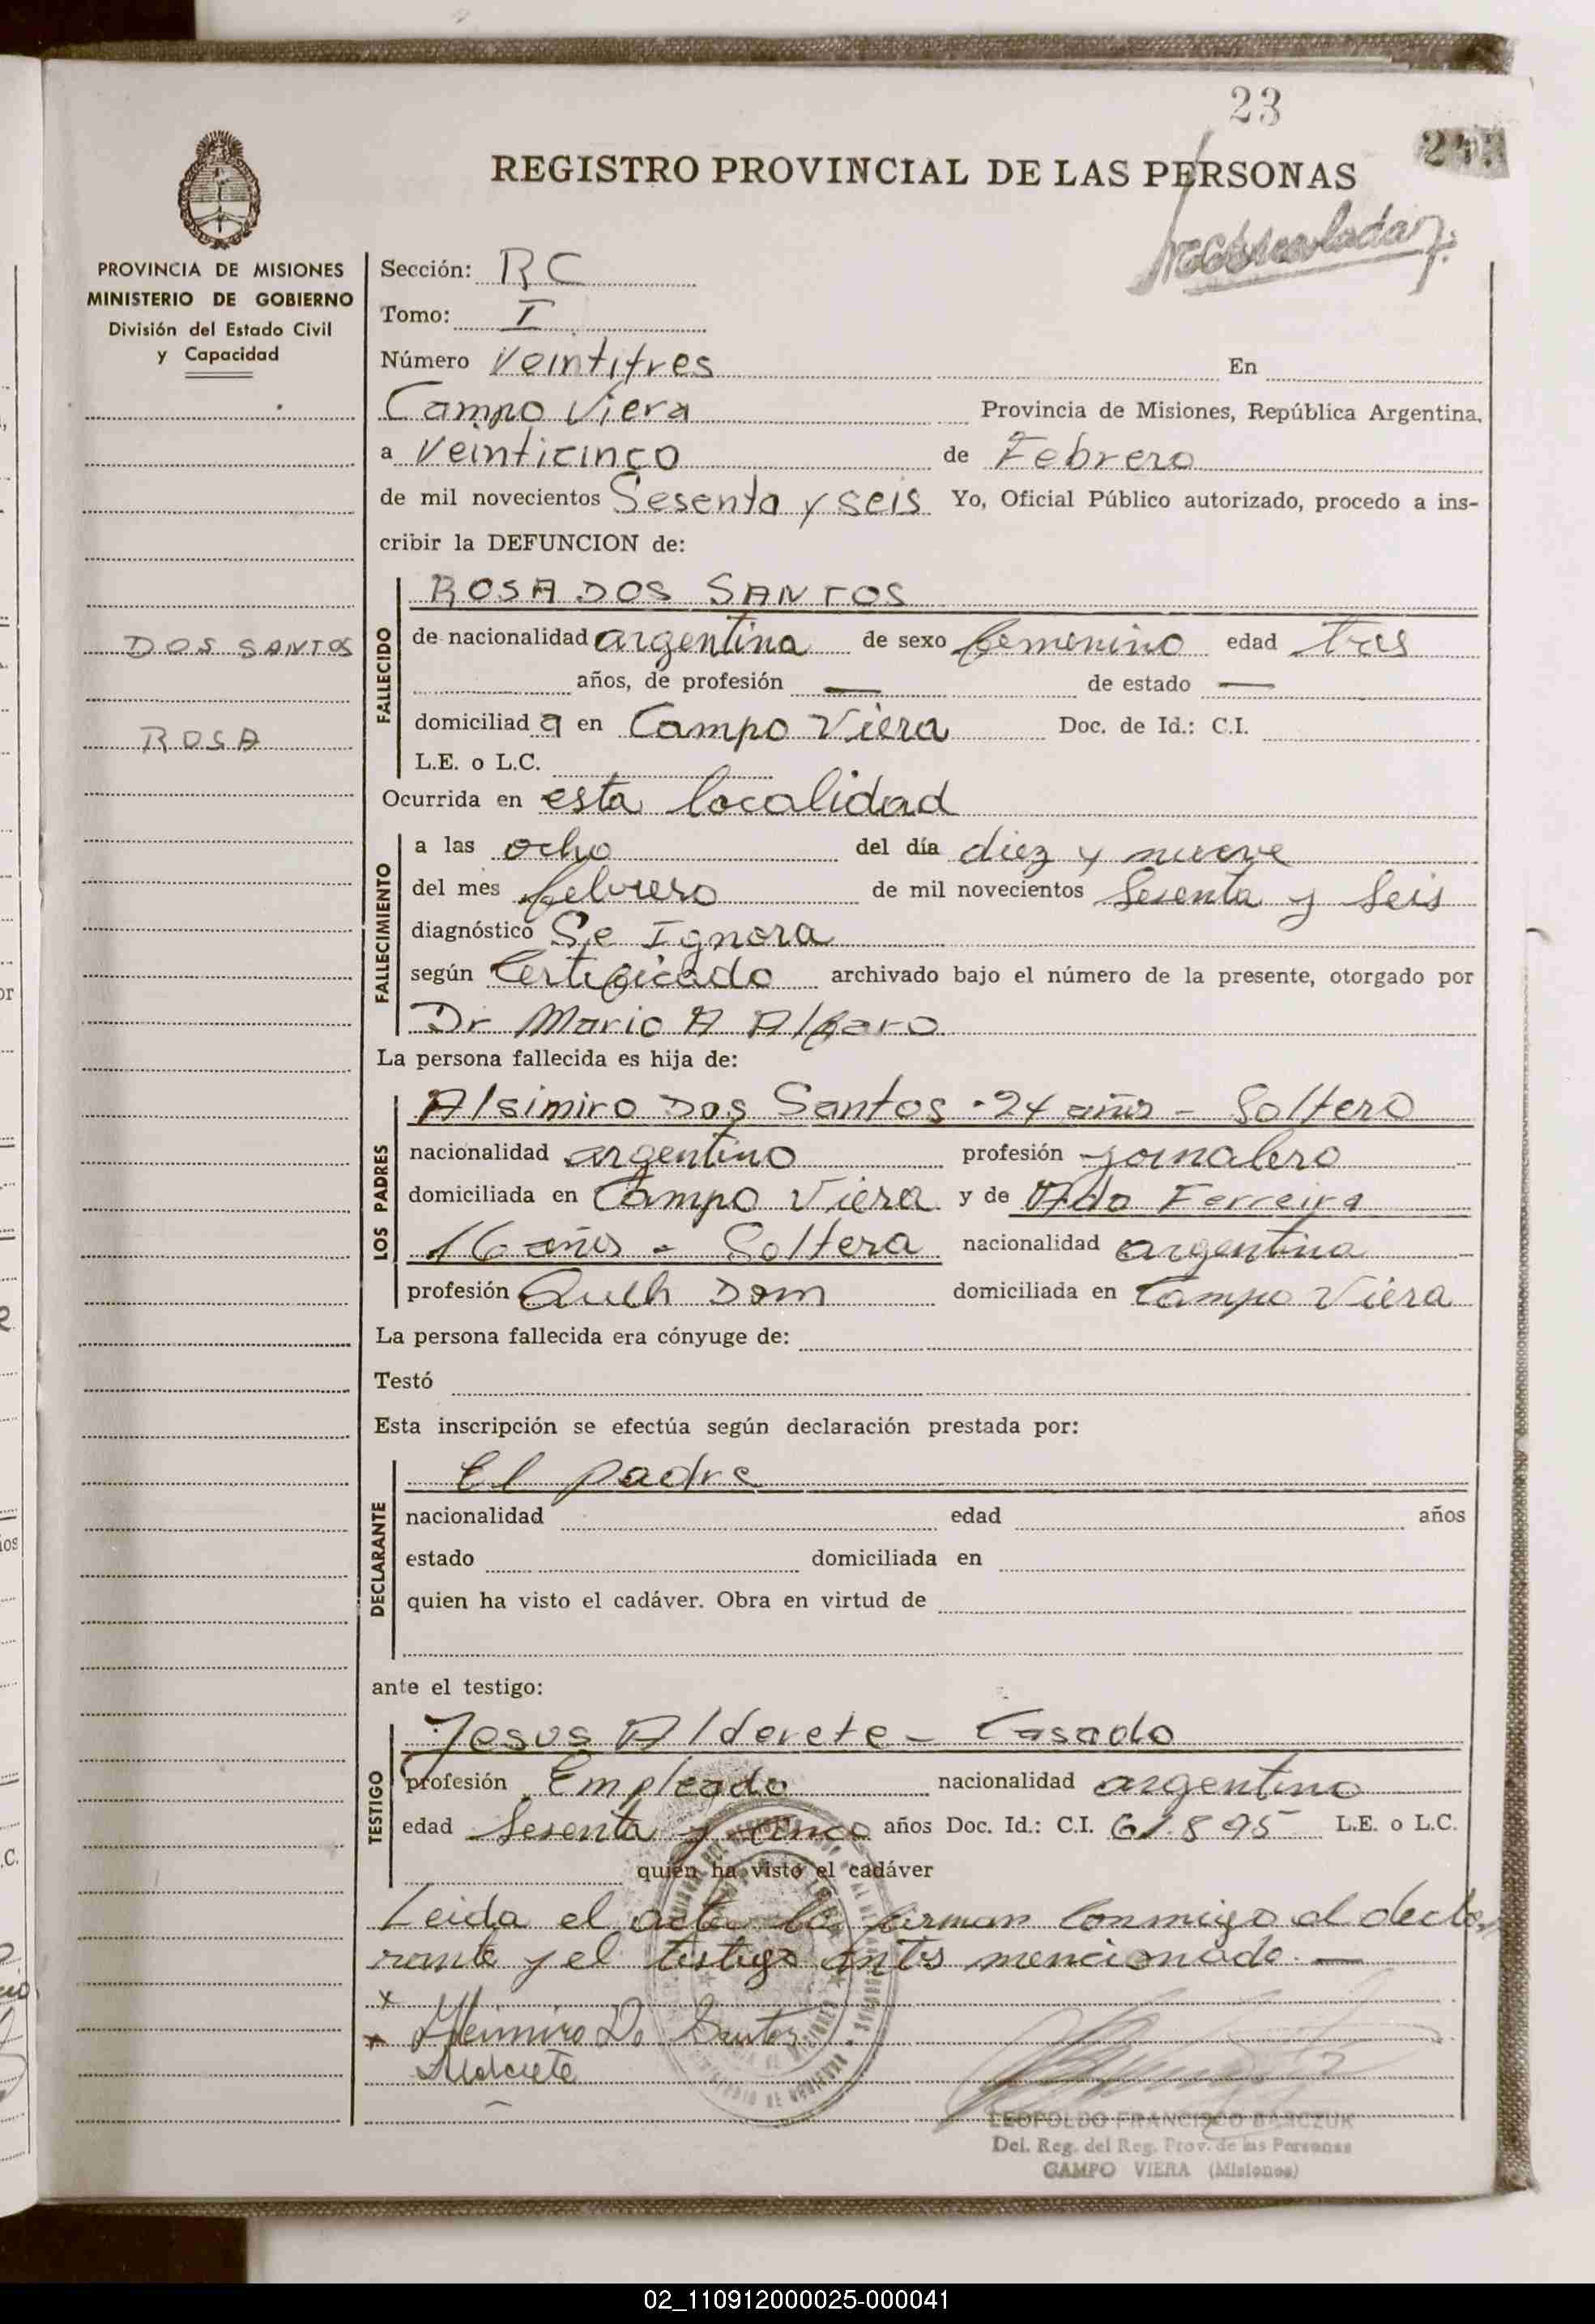 23
REGISTRO PROVINCIAL DE LAS PERSONAS
PROVINCIA DE MISIONES
MINISTERIO DE GOBIERNO
División del Estado Civil
y Capacidad
DOS SANTOS
ROSA
Sección: RC
Tomo: I
Número Veintitres En
Campo Viera Provincia de Misiones, República Argentina,
a Veinticinco de Febrero
de mil novecientos Sesenta y seis Yo, Oficial Público autorizado, procedo a ins-
cribir la DEFUNCION de:
FALLECIDO
ROSA DOS SANTOS
de nacionalidad argentina de sexo femenino edad tres
años, de profesión — de estado —
domiciliad a en Campo Viera Doc. de Id.: C.I.
L.E. o L.C.
Ocurrida en esta localidad
FALLECIMIENTO
a las ocho del día diez y nueve
del mes febrero de mil novecientos Sesenta y Seis
diagnóstico Se Ignora
según Certificado archivado bajo el número de la presente, otorgado por
Dr Mario A Alfaro
La persona fallecida es hija de:
LOS PADRES
Alsimiro Dos Santos - 24 años - Soltero
nacionalidad argentino profesión jornalero
domiciliada en Campo Viera y de Ada Ferreira
16 años - Soltera nacionalidad argentina
profesión Queh Dom domiciliada en Campo Viera
La persona fallecida era cónyuge de:
Testó
Esta inscripción se efectúa según declaración prestada por:
DECLARANTE
El padre
nacionalidad edad años
estado domiciliada en
quien ha visto el cadáver. Obra en virtud de
ante el testigo:
TESTIGO
Jesus Alderete - Casado
profesión Empleado nacionalidad argentino
edad Sesenta y cinco años Doc. Id.: C.I. 61.895 L.E. o L.C.
quien ha visto el cadáver
Leida el acta la firman conmigo el decla-
rante y el testigo antes mencionado. —
x
x Alsimiro Do Santos
Alderete
LEOPOLDO FRANCISCO BARCZUK
Del. Reg. del Reg. Prov. de las Personas
CAMPO VIERA (Misiones)
02_110912000025-000041